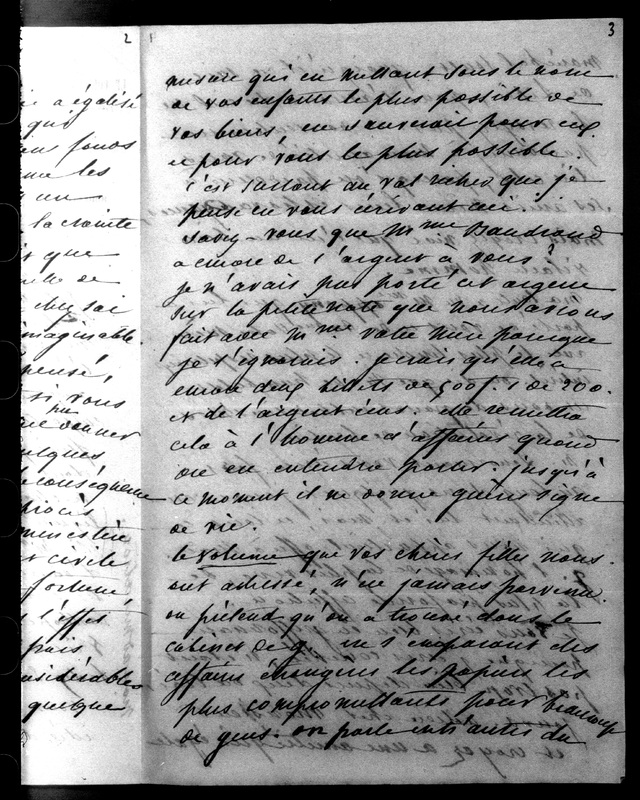 2
3
mesure qu'en mettant sous le nom
de vos enfants le plus possible de
vos biens, on sauverait pour eux
et pour vous le plus possible.
C'est surtout au val richer que je
pense en vous écrivant ceci.
Savez-vous que Mme Baudrand
a encore de l'argent à vous?
je n'avais pas porté cet argent
sur la petite note que nous avions
fait avec Mme votre mère parceque
je l'ignorais. je crois qu'elle a
encore deux billets de 500 f. 1 de 200.
et de l'argent écus. Elle remettra
cela à l'homme d'affaires quand
on en entendra parler. jusqu'à
ce moment il ne donne guères signe
de vie.
le volume que vos chères filles nous
ont adressé, n'est jamais parvenu.
on prétend qu'on a trouvé dans le
cabinet de g. en s'emparant des
affaires étrangères les papiers les
plus compromettants pour beaucoup
de gens. on parle entr'autres du
à égalité
qui
fonds
me les
un
la crainte
que
de
chez soi
imaginable.
pensé,
si vous
donner
quelques
conséquence
procès
ministère
civile
fortune,
l'effet
frais
considérables
quelque